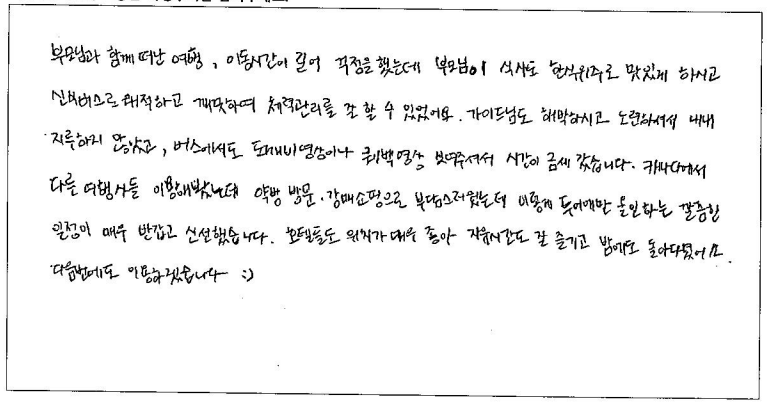 부모님과 함께 떠난 여행, 이동시간이 길어 걱정을 했는데 부모님이 식사도 한식위주로 맛있게 하시고
신의버스로 쾌적하고 깨끗하여 체력관리를 잘 할 수 있었어요. 가이드님도 해박하시고 노련하셔서 내내
지루하지 않았고, 버스에서도 도깨비영상이나 퀘백영상 보여주셔서 시간이 금세 갔습니다. 캐나다에서
다른 여행사들 이용해봤는데 약방 방문·강매쇼핑으로 부담스러웠는데 이렇게 투어에만 올인하는 깔끔한
일정이 매우 반갑고 신선했습니다. 호텔들도 위치가 매우 좋아 자유시간도 잘 즐기고 밤에도 돌아다녔어요.
다음번에도 이용하겠습니다 :)